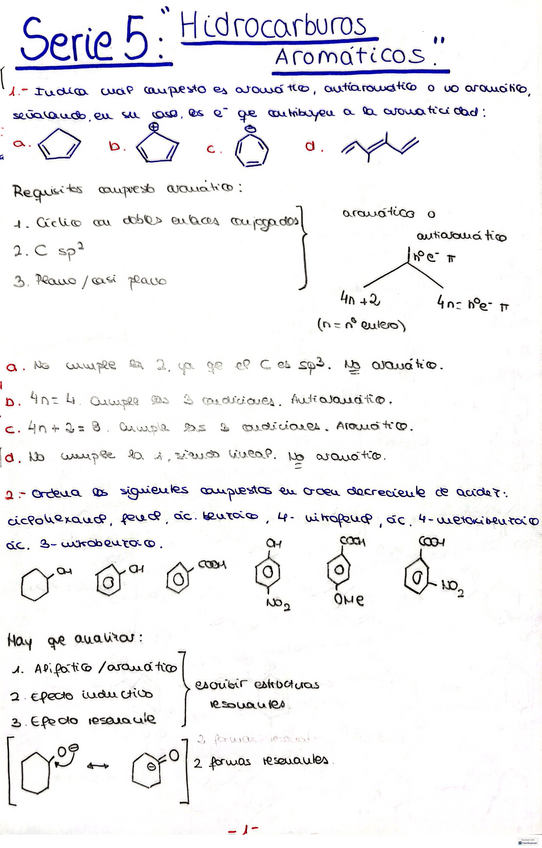 Serie 5: "Hidrocarburos
Aromáticos."
1.- Indica cual compuesto es aromático, antiaromático o no aromático,
señalando, en su caso, los e⁻ que contribuyen a la aromaticidad:
a. b. ⊕ c. d.
Requisitos compuesto aromático:
1. Cíclico con dobles enlaces conjugados
2. C sp²
3. Plano / casi plano
aromático o
antiaromático
nº e⁻ π
4n+2
4n = nº e⁻ π
(n = nº entero)
a. No cumple la 2, ya que el C es sp³. No aromático.
b. 4n = 4. Cumple las 3 condiciones. Antiaromático.
c. 4n + 2 = 8. Cumple las 3 condiciones. Aromático.
d. No cumple la 1, siendo lineal. No aromático.
2.- Ordena los siguientes compuestos en orden decreciente de acidez:
ciclohexanol, fenol, ác. benzoico, 4- nitrofenol, ác. 4-metoxibenzoico
ác. 3-nitrobenzoico.
OH OH COOH OH COOH COOH
NO₂ OMe NO₂
Hay que analizar:
1. Alifático / aromático
2. Efecto inductivo
3. Efecto resonante
escribir estructuras
resonantes
2 formas
O⊖ ↔ ⊖ O 2 formas resonantes.
-1-